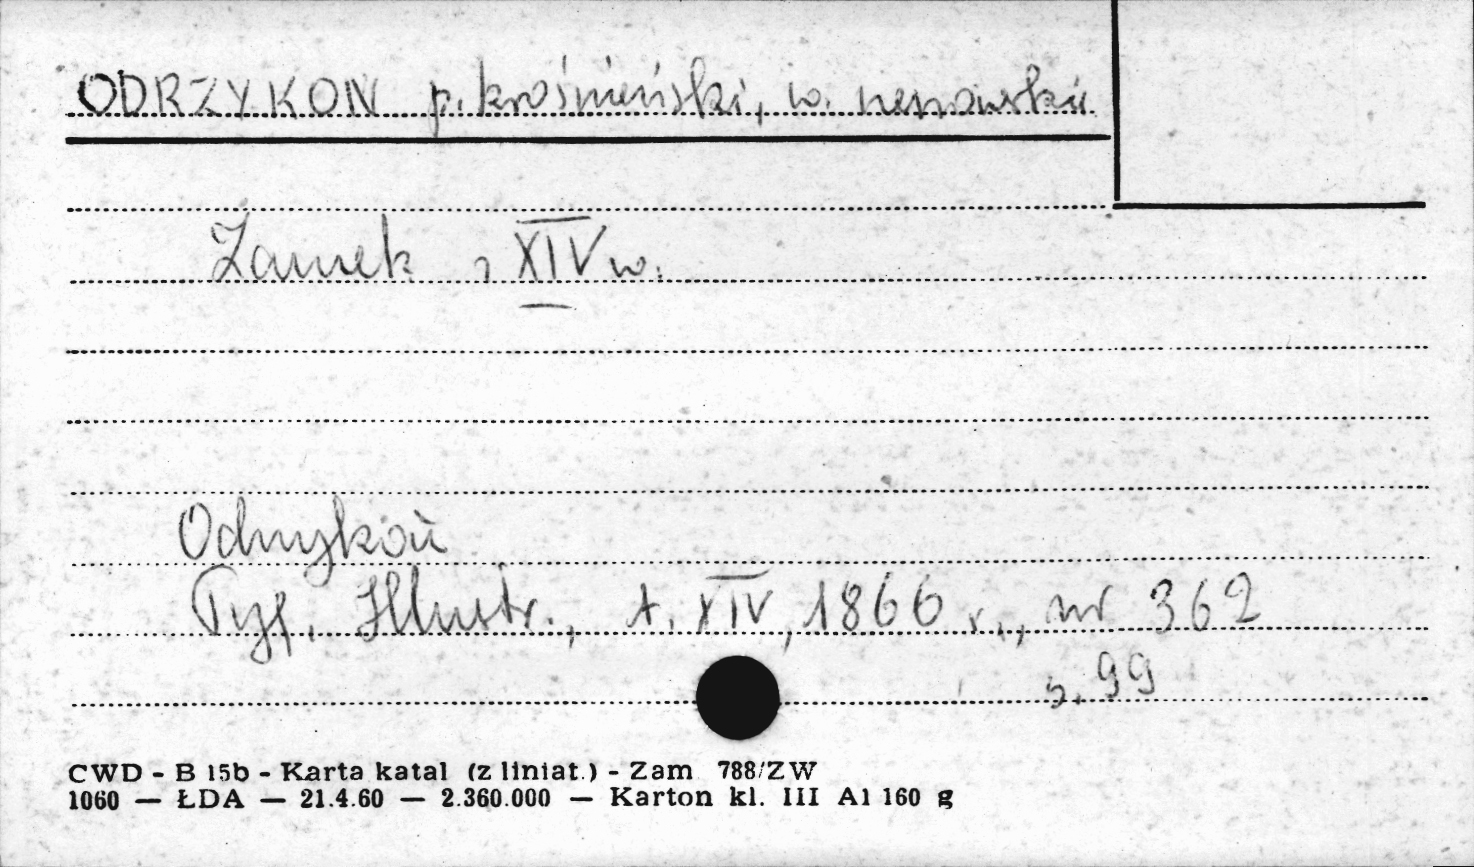 ODRZYKOŃ p. krośnieński, w. rzeszowskie
Zamek z XIV w.
Odrzykoń
Tyg. Illustr., t. XIV, 1866 r., nr 362
s. 99
CWD - B 15b - Karta katal (z liniat.) - Zam 788/ZW
1060 — ŁDA — 21.4.60 — 2.360.000 — Karton kl. III A1 160 g